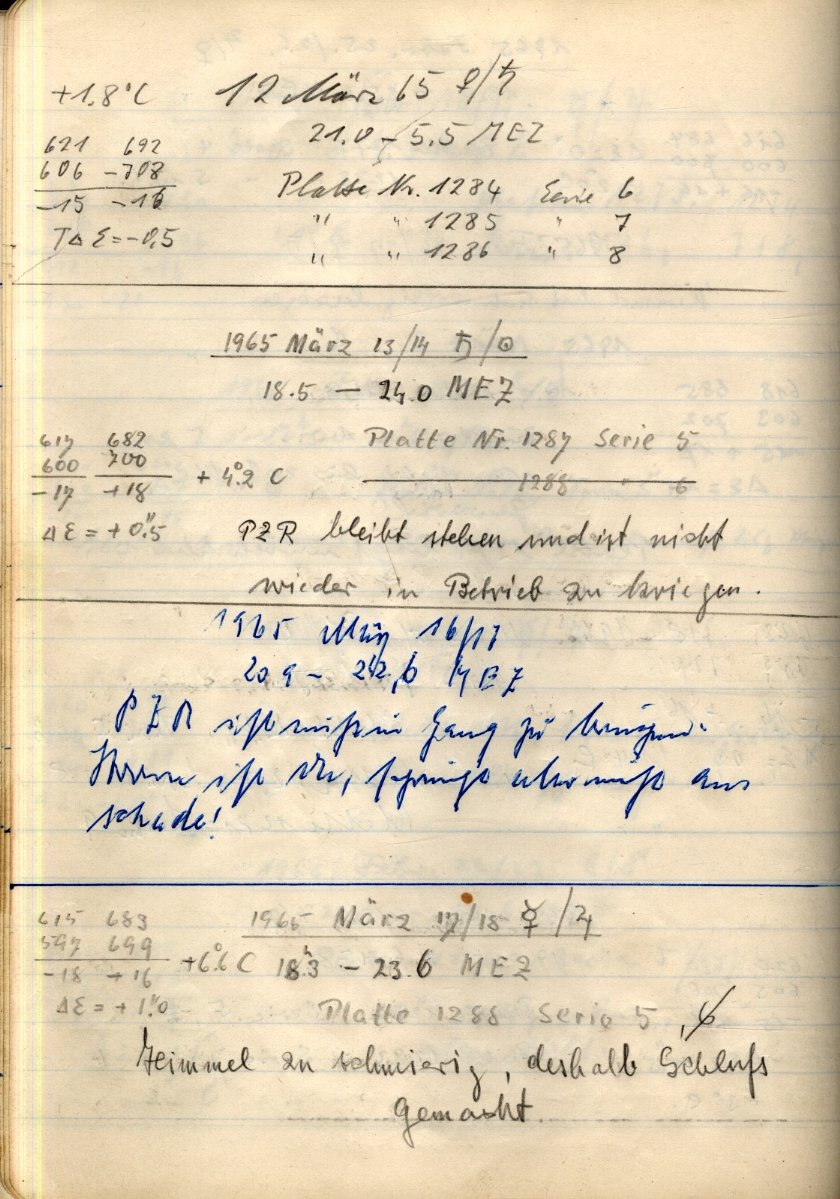 +1.8°C 12 März 65 ♀/♄
21.0 - 5.5 MEZ
621 692
606 -708
-15 -16
TΔE=-0,5
Platte Nr. 1284 Serie 6
" " 1285 " 7
" " 1286 " 8
1965 März 13/14 ♄/☉
18.5 — 24.0 MEZ
Platte Nr. 1287 Serie 5
1288 " 6
617 682
600 700
-17 +18
+4°.2 C
Δε = +0".5
PZR bleibt stehen und ist nicht
wieder in Betrieb zu kriegen.
1965 März 16/17
20.9 - 22,6 MEZ
PZR ist nicht in Gang zu bringen.
ist da, aber nicht aus
schade!
615 683
597 699
-18 +16
+6°.6 C
Δε = +1".0
1965 März 17/18 ☿/♃
18h.3 - 23.6 MEZ
Platte 1288 Serie 5, 6
Himmel zu schmierig, deshalb Schluß
gemacht.